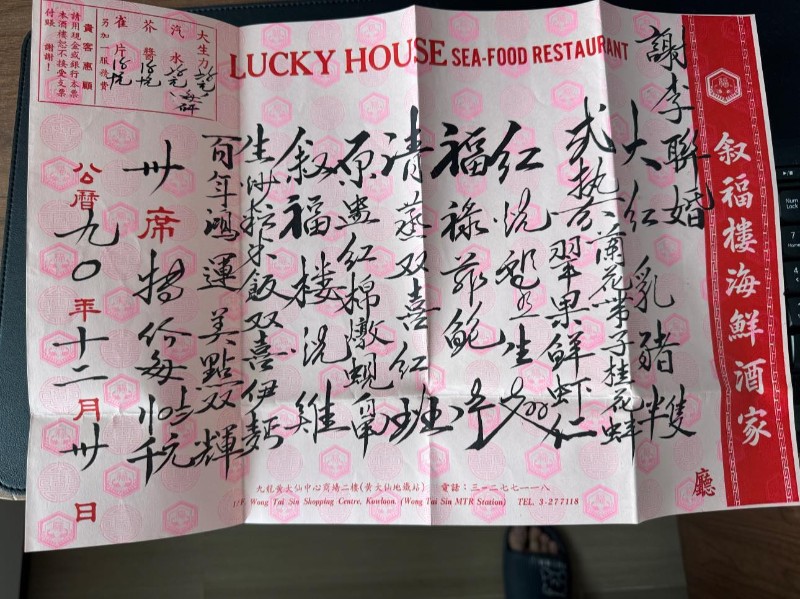 敘福樓海鮮酒家
廳
LUCKY HOUSE SEA-FOOD RESTAURANT
謝李聯婚
大紅乳豬隻
弍热葷 蘭花帶子桂花蚌
翠果鮮虾仁
紅生翅
福祿菇鮑
清蒸双喜紅班
原盅紅棉燉
敘福樓雞
生炒糯米飯双喜伊麵
百年鴻運 美點双輝
卅席 特价每千元
公曆九〇年十二月卅日
大生力
汽水
芥醬
雀片
另加一服務費
貴客惠顧
請用現金或銀行本票
本酒樓恕不接受支票
付賬 謝謝!
九龍黃大仙中心商場二樓(黃大仙地鐵站) 電話:三—二七七一一八
1/F. Wong Tai Sin Shopping Centre, Kowloon. (Wong Tai Sin MTR Station) TEL. 3-277118